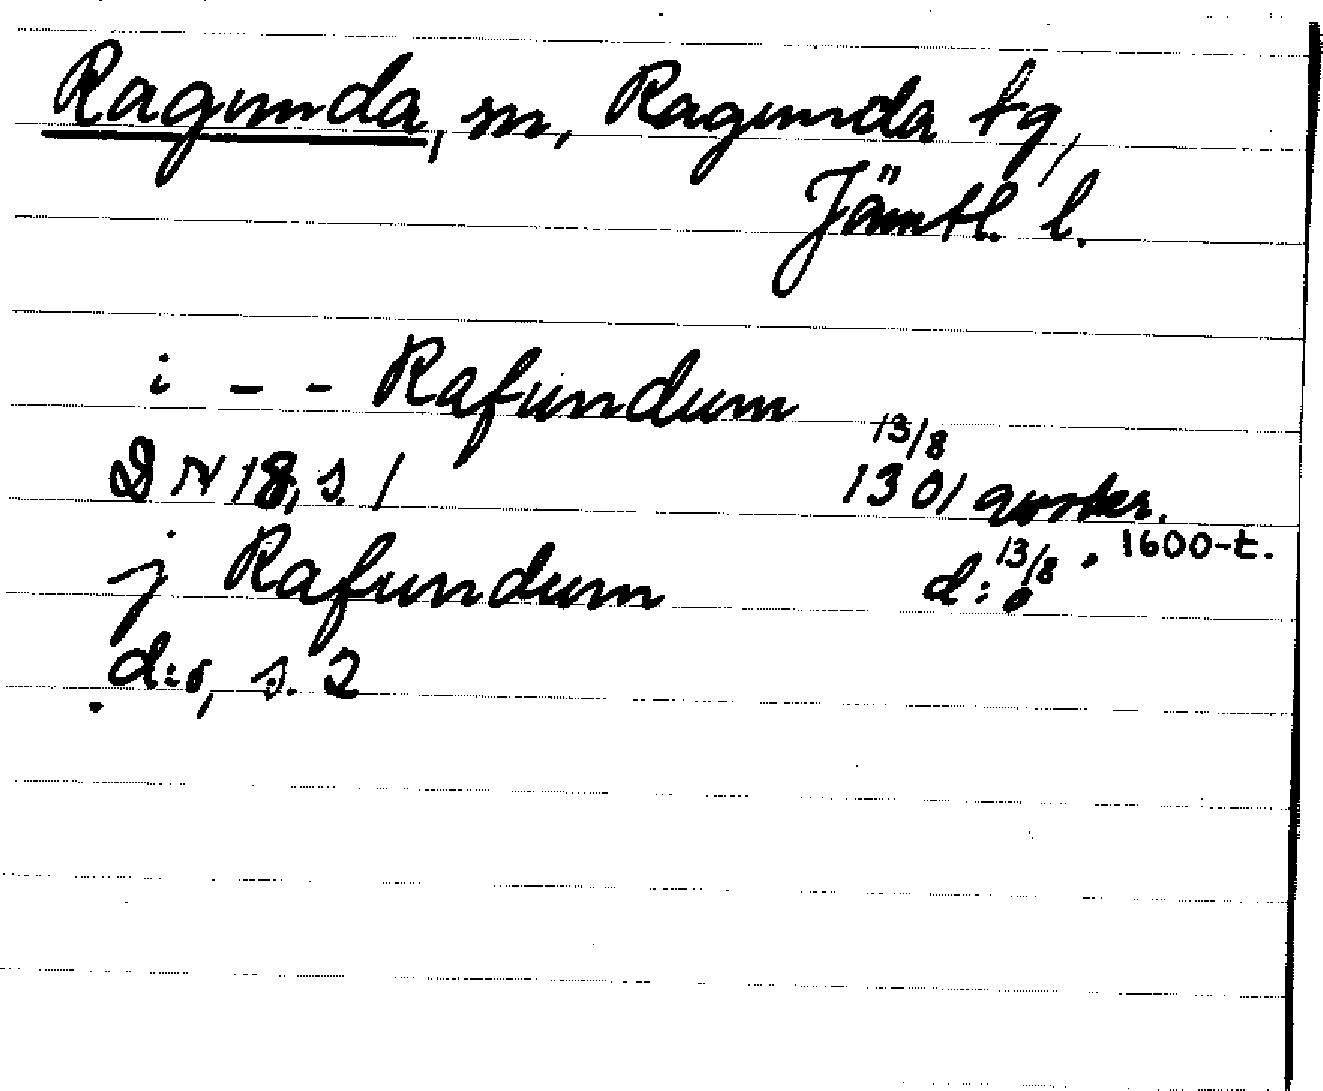 Ragunda, sn, Ragunda tg,
Jämtl. l.
i - - Rafundum
DN 18, s. 1 13/8 1301 avskr. 1600-t.
j Rafundum d:o 13/8
d:o, s. 2